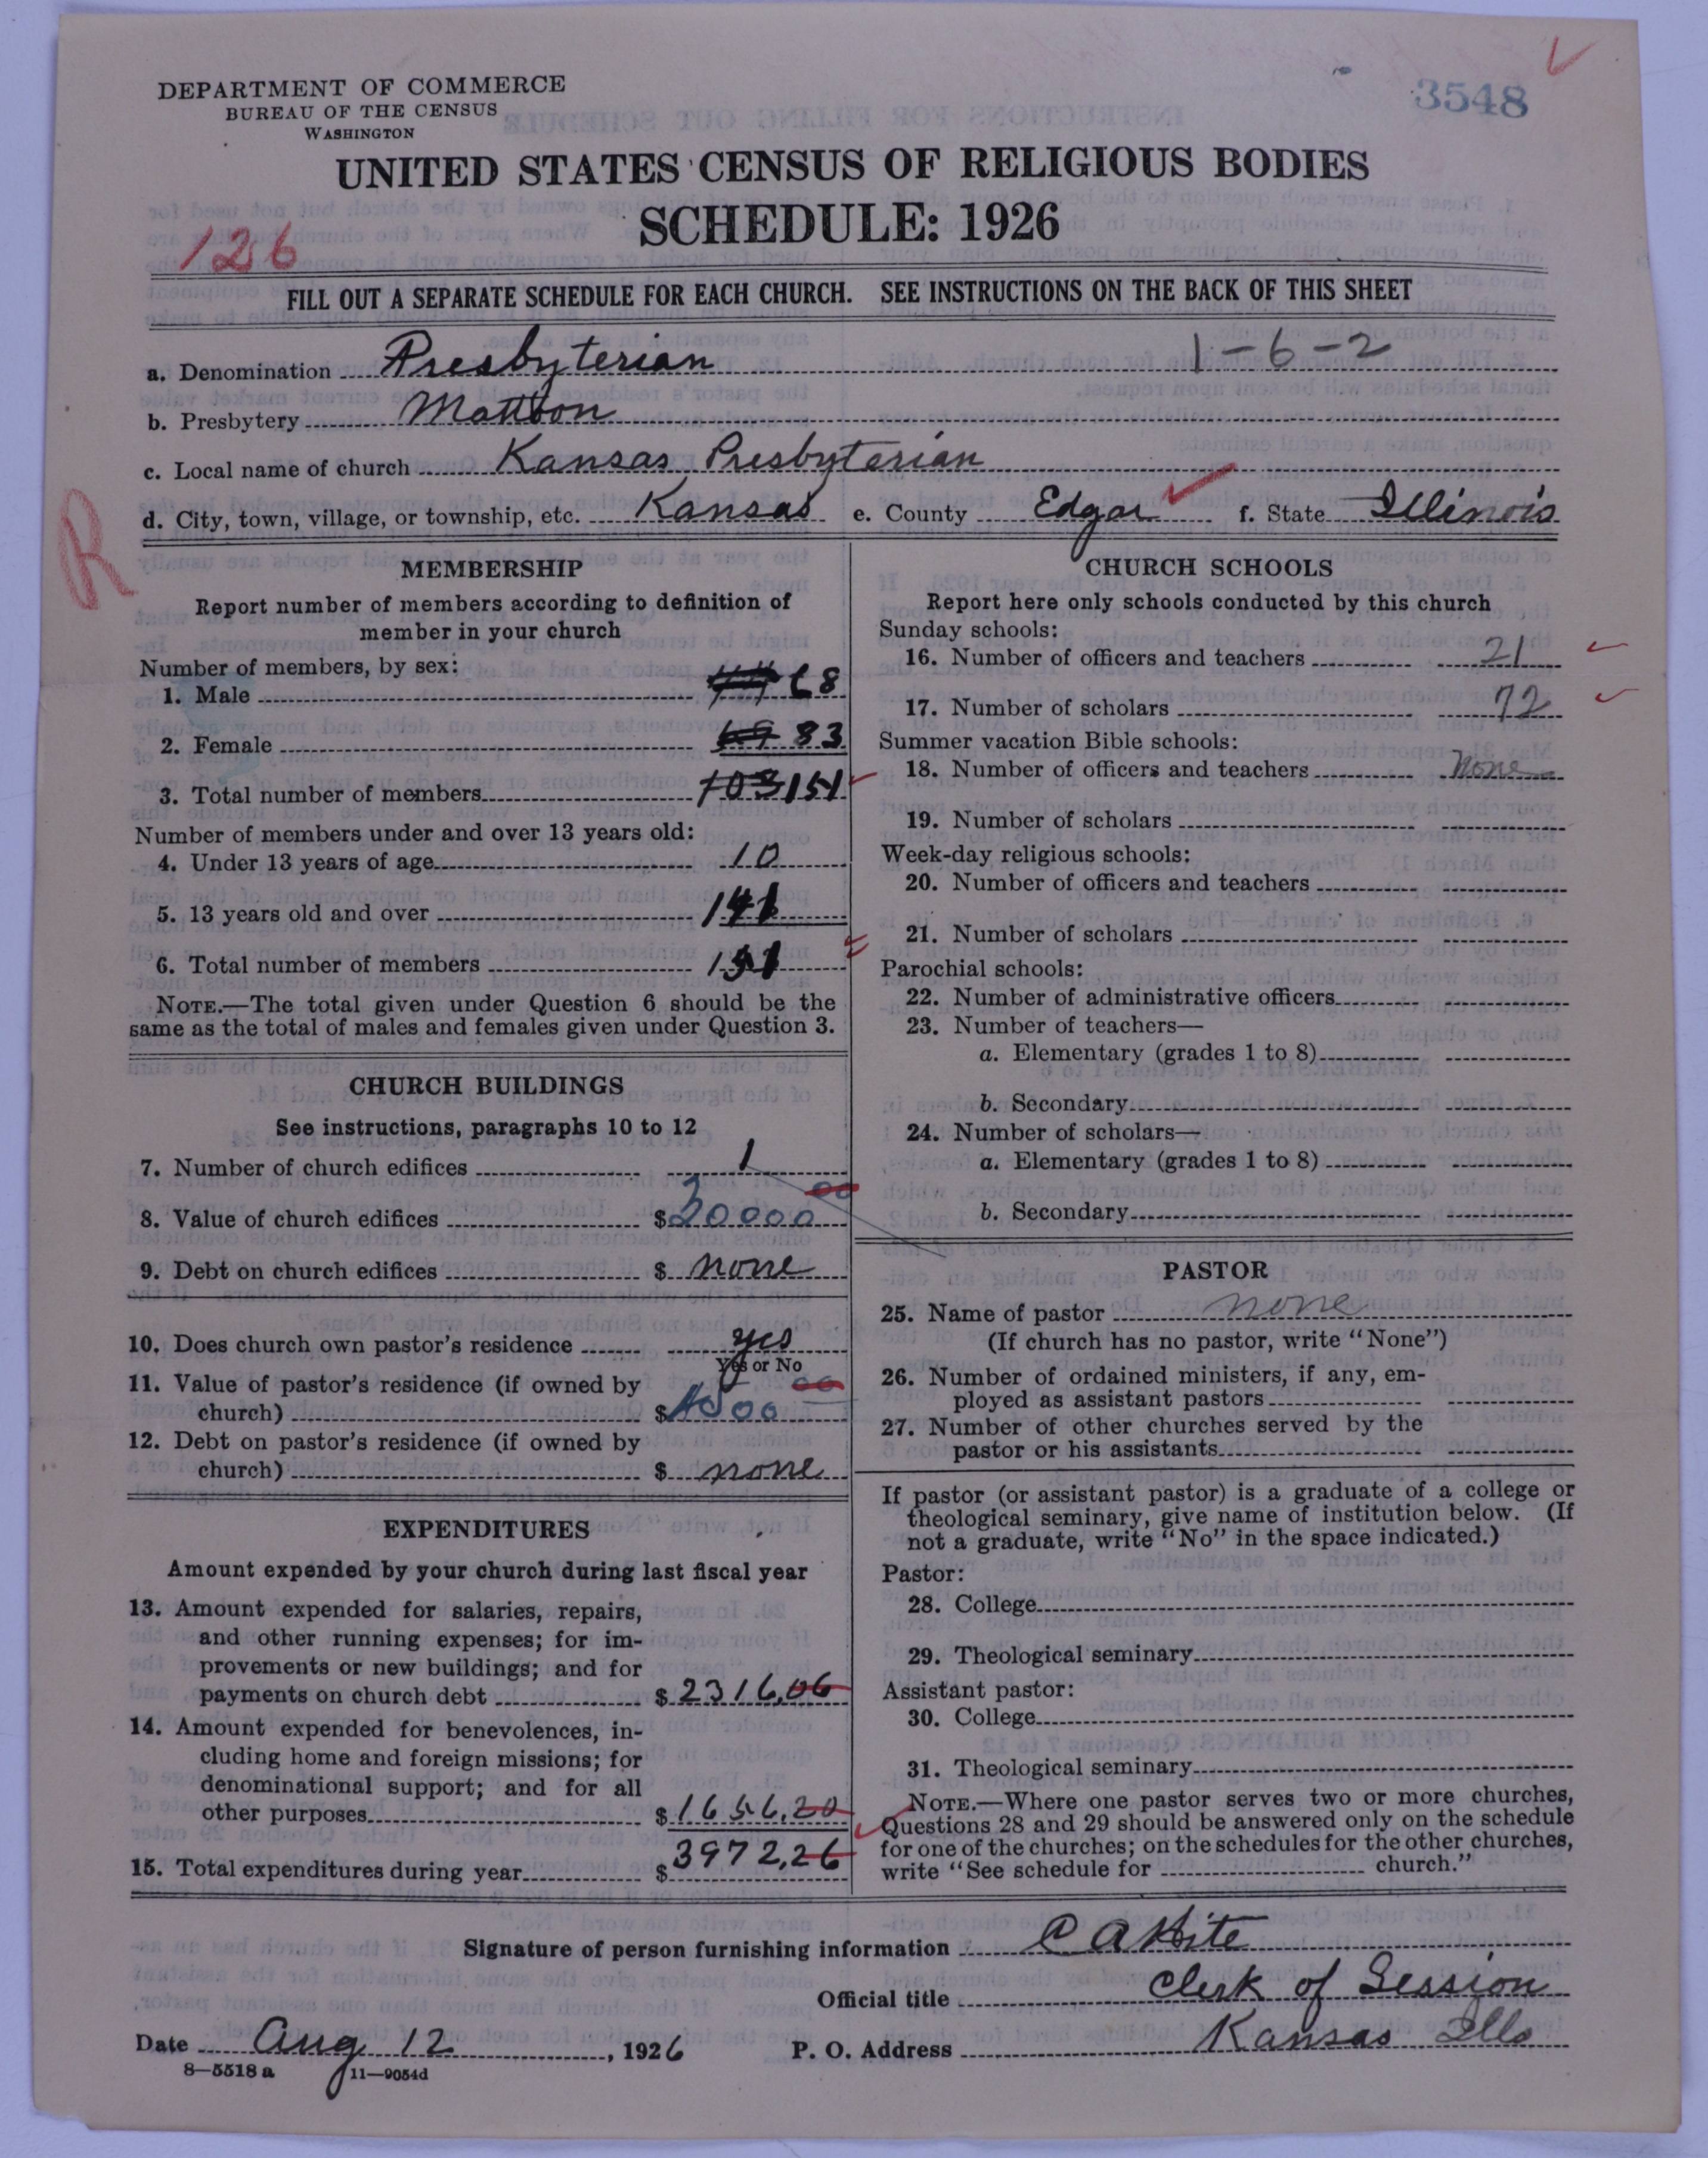 DEPARTMENT OF COMMERCE
BUREAU OF THE CENSUS
WASHINGTON
3548
UNITED STATES CENSUS OF RELIGIOUS BODIES
SCHEDULE: 1926
126
FILL OUT A SEPARATE SCHEDULE FOR EACH CHURCH. SEE INSTRUCTIONS ON THE BACK OF THIS SHEET
1-6-2
a. Denomination Presbyterian
b. Presbytery Mattoon
c. Local name of church Kansas Presbyterian
d. City, town, village, or township, etc. Kansas e. County Edgar f. State Illinois
R
MEMBERSHIP
Report number of members according to definition of
member in your church
Number of members, by sex:
1. Male 68
2. Female 69 83
3. Total number of members 103 151
Number of members under and over 13 years old:
4. Under 13 years of age 10
5. 13 years old and over 141
6. Total number of members 151
NOTE.—The total given under Question 6 should be the
same as the total of males and females given under Question 3.
CHURCH BUILDINGS
See instructions, paragraphs 10 to 12
7. Number of church edifices 1
8. Value of church edifices $ 20000 00
9. Debt on church edifices $ none
10. Does church own pastor's residence yes
Yes or No
11. Value of pastor's residence (if owned by
church) $ 4000 00
12. Debt on pastor's residence (if owned by
church) $ none
EXPENDITURES
Amount expended by your church during last fiscal year
13. Amount expended for salaries, repairs,
and other running expenses; for im-
provements or new buildings; and for
payments on church debt $ 2316.06
14. Amount expended for benevolences, in-
cluding home and foreign missions; for
denominational support; and for all
other purposes $ 1656.20
15. Total expenditures during year $ 3972.26
CHURCH SCHOOLS
Report here only schools conducted by this church
Sunday schools:
16. Number of officers and teachers 21
17. Number of scholars 72
Summer vacation Bible schools:
18. Number of officers and teachers None
19. Number of scholars
Week-day religious schools:
20. Number of officers and teachers
21. Number of scholars
Parochial schools:
22. Number of administrative officers
23. Number of teachers—
a. Elementary (grades 1 to 8)
b. Secondary
24. Number of scholars—
a. Elementary (grades 1 to 8)
b. Secondary
PASTOR
25. Name of pastor none
(If church has no pastor, write "None")
26. Number of ordained ministers, if any, em-
ployed as assistant pastors
27. Number of other churches served by the
pastor or his assistants
If pastor (or assistant pastor) is a graduate of a college or
theological seminary, give name of institution below. (If
not a graduate, write "No" in the space indicated.)
Pastor:
28. College
29. Theological seminary
Assistant pastor:
30. College
31. Theological seminary
NOTE.—Where one pastor serves two or more churches,
Questions 28 and 29 should be answered only on the schedule
for one of the churches; on the schedules for the other churches,
write "See schedule for church."
Signature of person furnishing information C A Hite
Official title Clerk of Session
Date Aug 12, 1926 P. O. Address Kansas Ills
8—5518 a 11—9054d